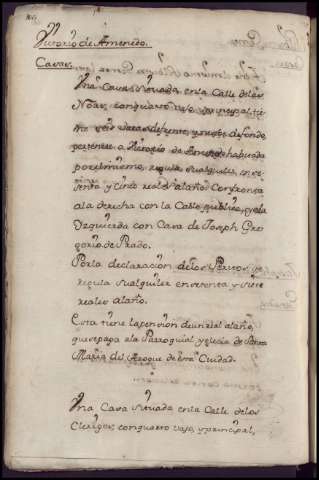 de Armenedo.
Casas.
Vna Casa situada en la Calle de los
con quarto vajo y principal, tie
ne seis varas de frente, y nueve de fondo
pertenece a de havitada
por el mismo, regula su alquiler en se
senta y cinco reales al año. Confronta
a la derecha con la Calle publica, y a la
Izquierda con Casa de Joseph Gre
gorio de Prado.
Por la declaracion de los Peritos se
regula su alquiler en setenta y siete
reales al año.
Esta tiene la pension de un real al año,
que se paga a la Parroquial yglesia de Santa
Maria del Azogue de esta Ciudad.
Vna Casa situada en la Calle de los
Clerigos, con quarto vajo, y principal,